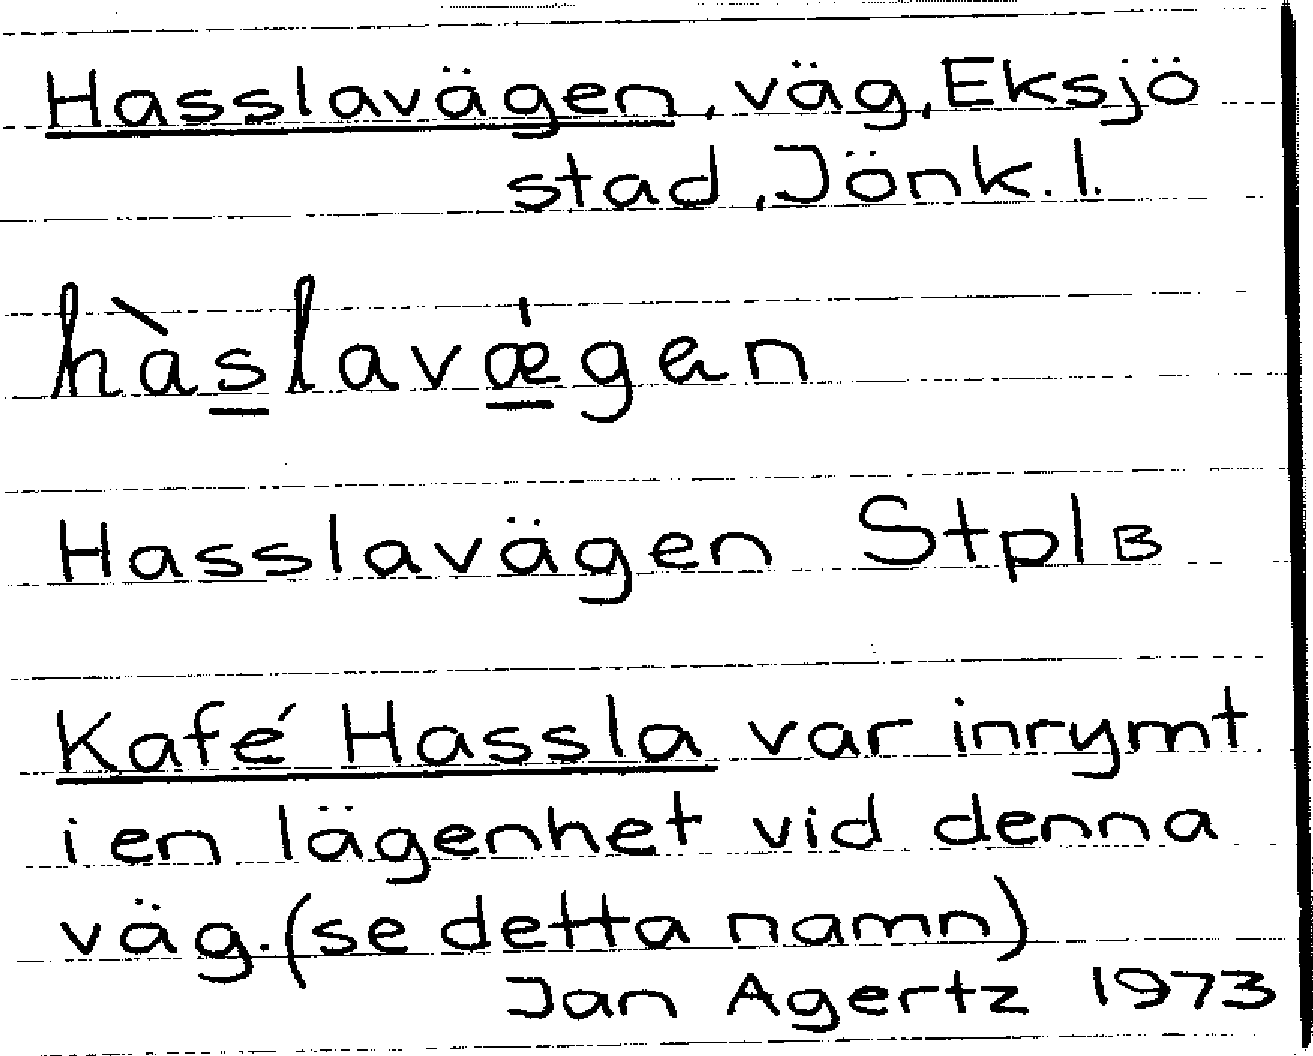 Hasslavägen, väg, Eksjö
stad, Jönk. l.
hàslavǽgen
Hasslavägen StplB
Kafé Hassla var inrymt
i en lägenhet vid denna
väg. (se detta namn)
Jan Agertz 1973